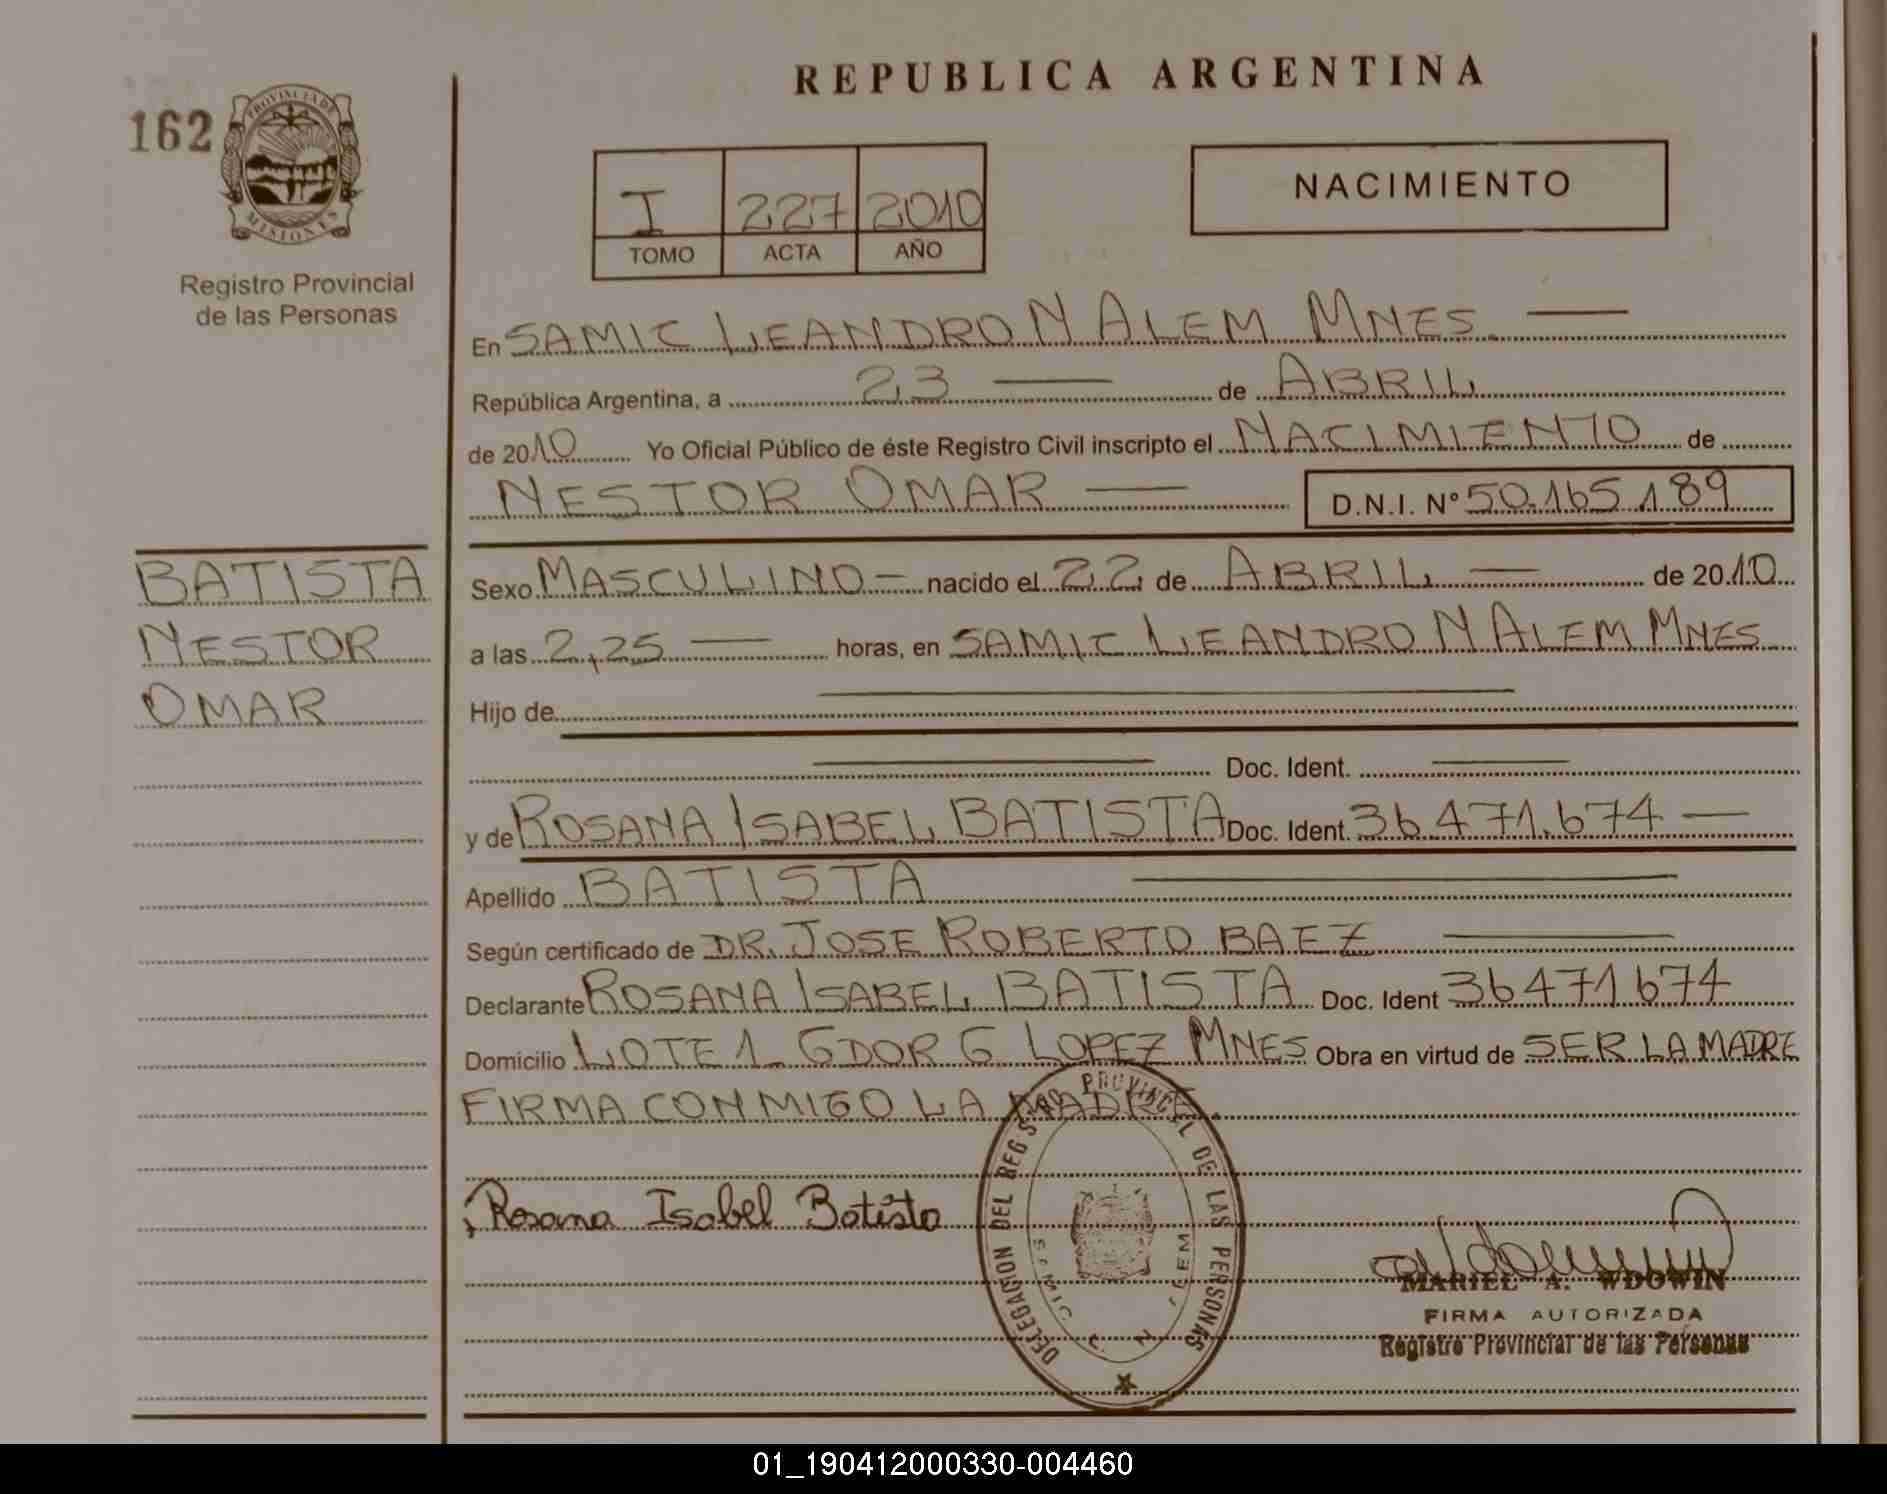 REPUBLICA ARGENTINA
162
PROVINCIA DE
MISIONES
Registro Provincial
de las Personas
I 227 2010
TOMO ACTA AÑO
NACIMIENTO
En SAMIC LEANDRO N ALEM MNES.
República Argentina, a 23 de ABRIL
de 2010 Yo Oficial Público de éste Registro Civil inscripto el NACIMIENTO de
NESTOR OMAR D.N.I. N° 50.165.189
BATISTA
NESTOR
OMAR
Sexo MASCULINO nacido el 22 de ABRIL de 2010
a las 2,25 horas, en SAMIC LEANDRO N ALEM MNES
Hijo de
Doc. Ident.
y de ROSANA ISABEL BATISTA Doc. Ident. 36471.674
Apellido BATISTA
Según certificado de DR. JOSE ROBERTO BAEZ
Declarante ROSANA ISABEL BATISTA Doc. Ident 36471674
Domicilio LOTE 1 GDOR G LOPEZ MNES Obra en virtud de SER LA MADRE
FIRMA CONMIGO LA MADRE.
Rosana Isabel Batista
DELEGACION DEL REGISTRO PROVINCIAL DE LAS PERSONAS
SAMIC L. N. ALEM
MARIEL A. WDOWIN
FIRMA AUTORIZADA
Registro Provincial de las Personas
01_190412000330-004460